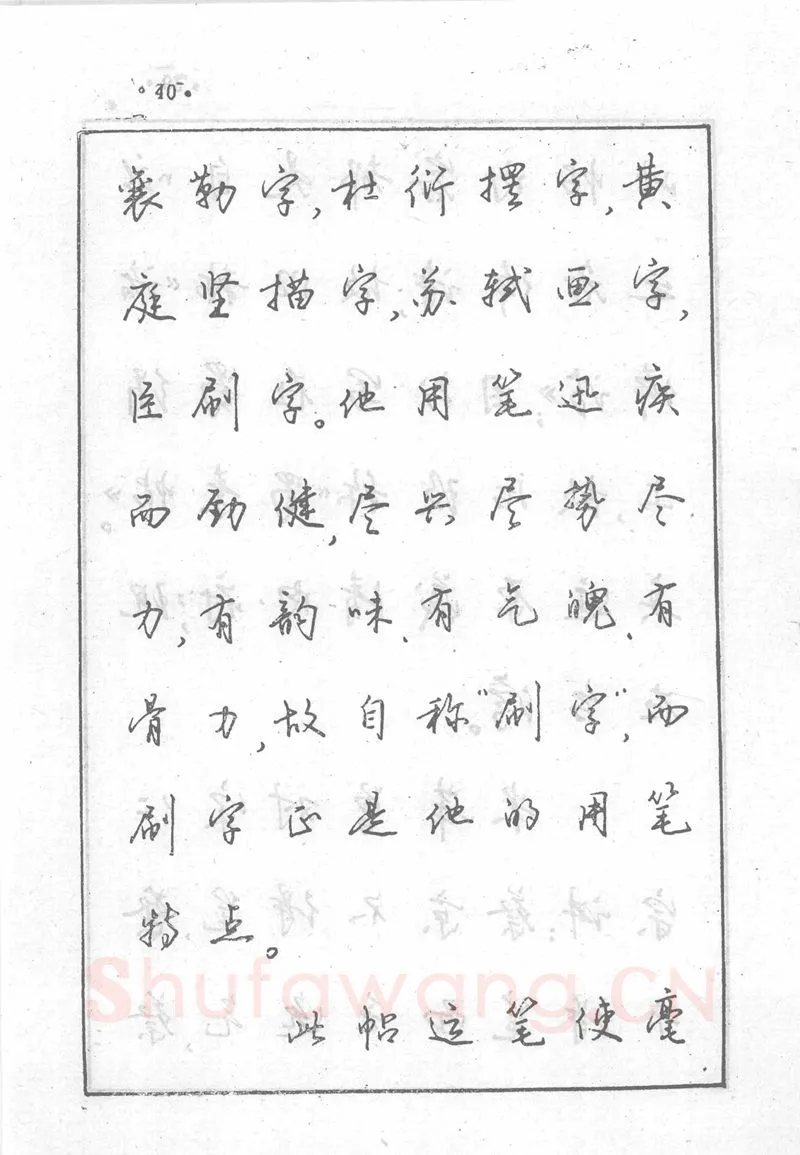 40
襄勒字,杜衍摆字,黄
庭坚描字,苏轼画字,
臣刷字。他用笔迅疾
而劲健,尽兴尽势尽
力,有韵味、有气魄、有
骨力,故自称“刷字”,而
刷字正是他的用笔
特点。
Shufawang.CN
此帖运笔使毫